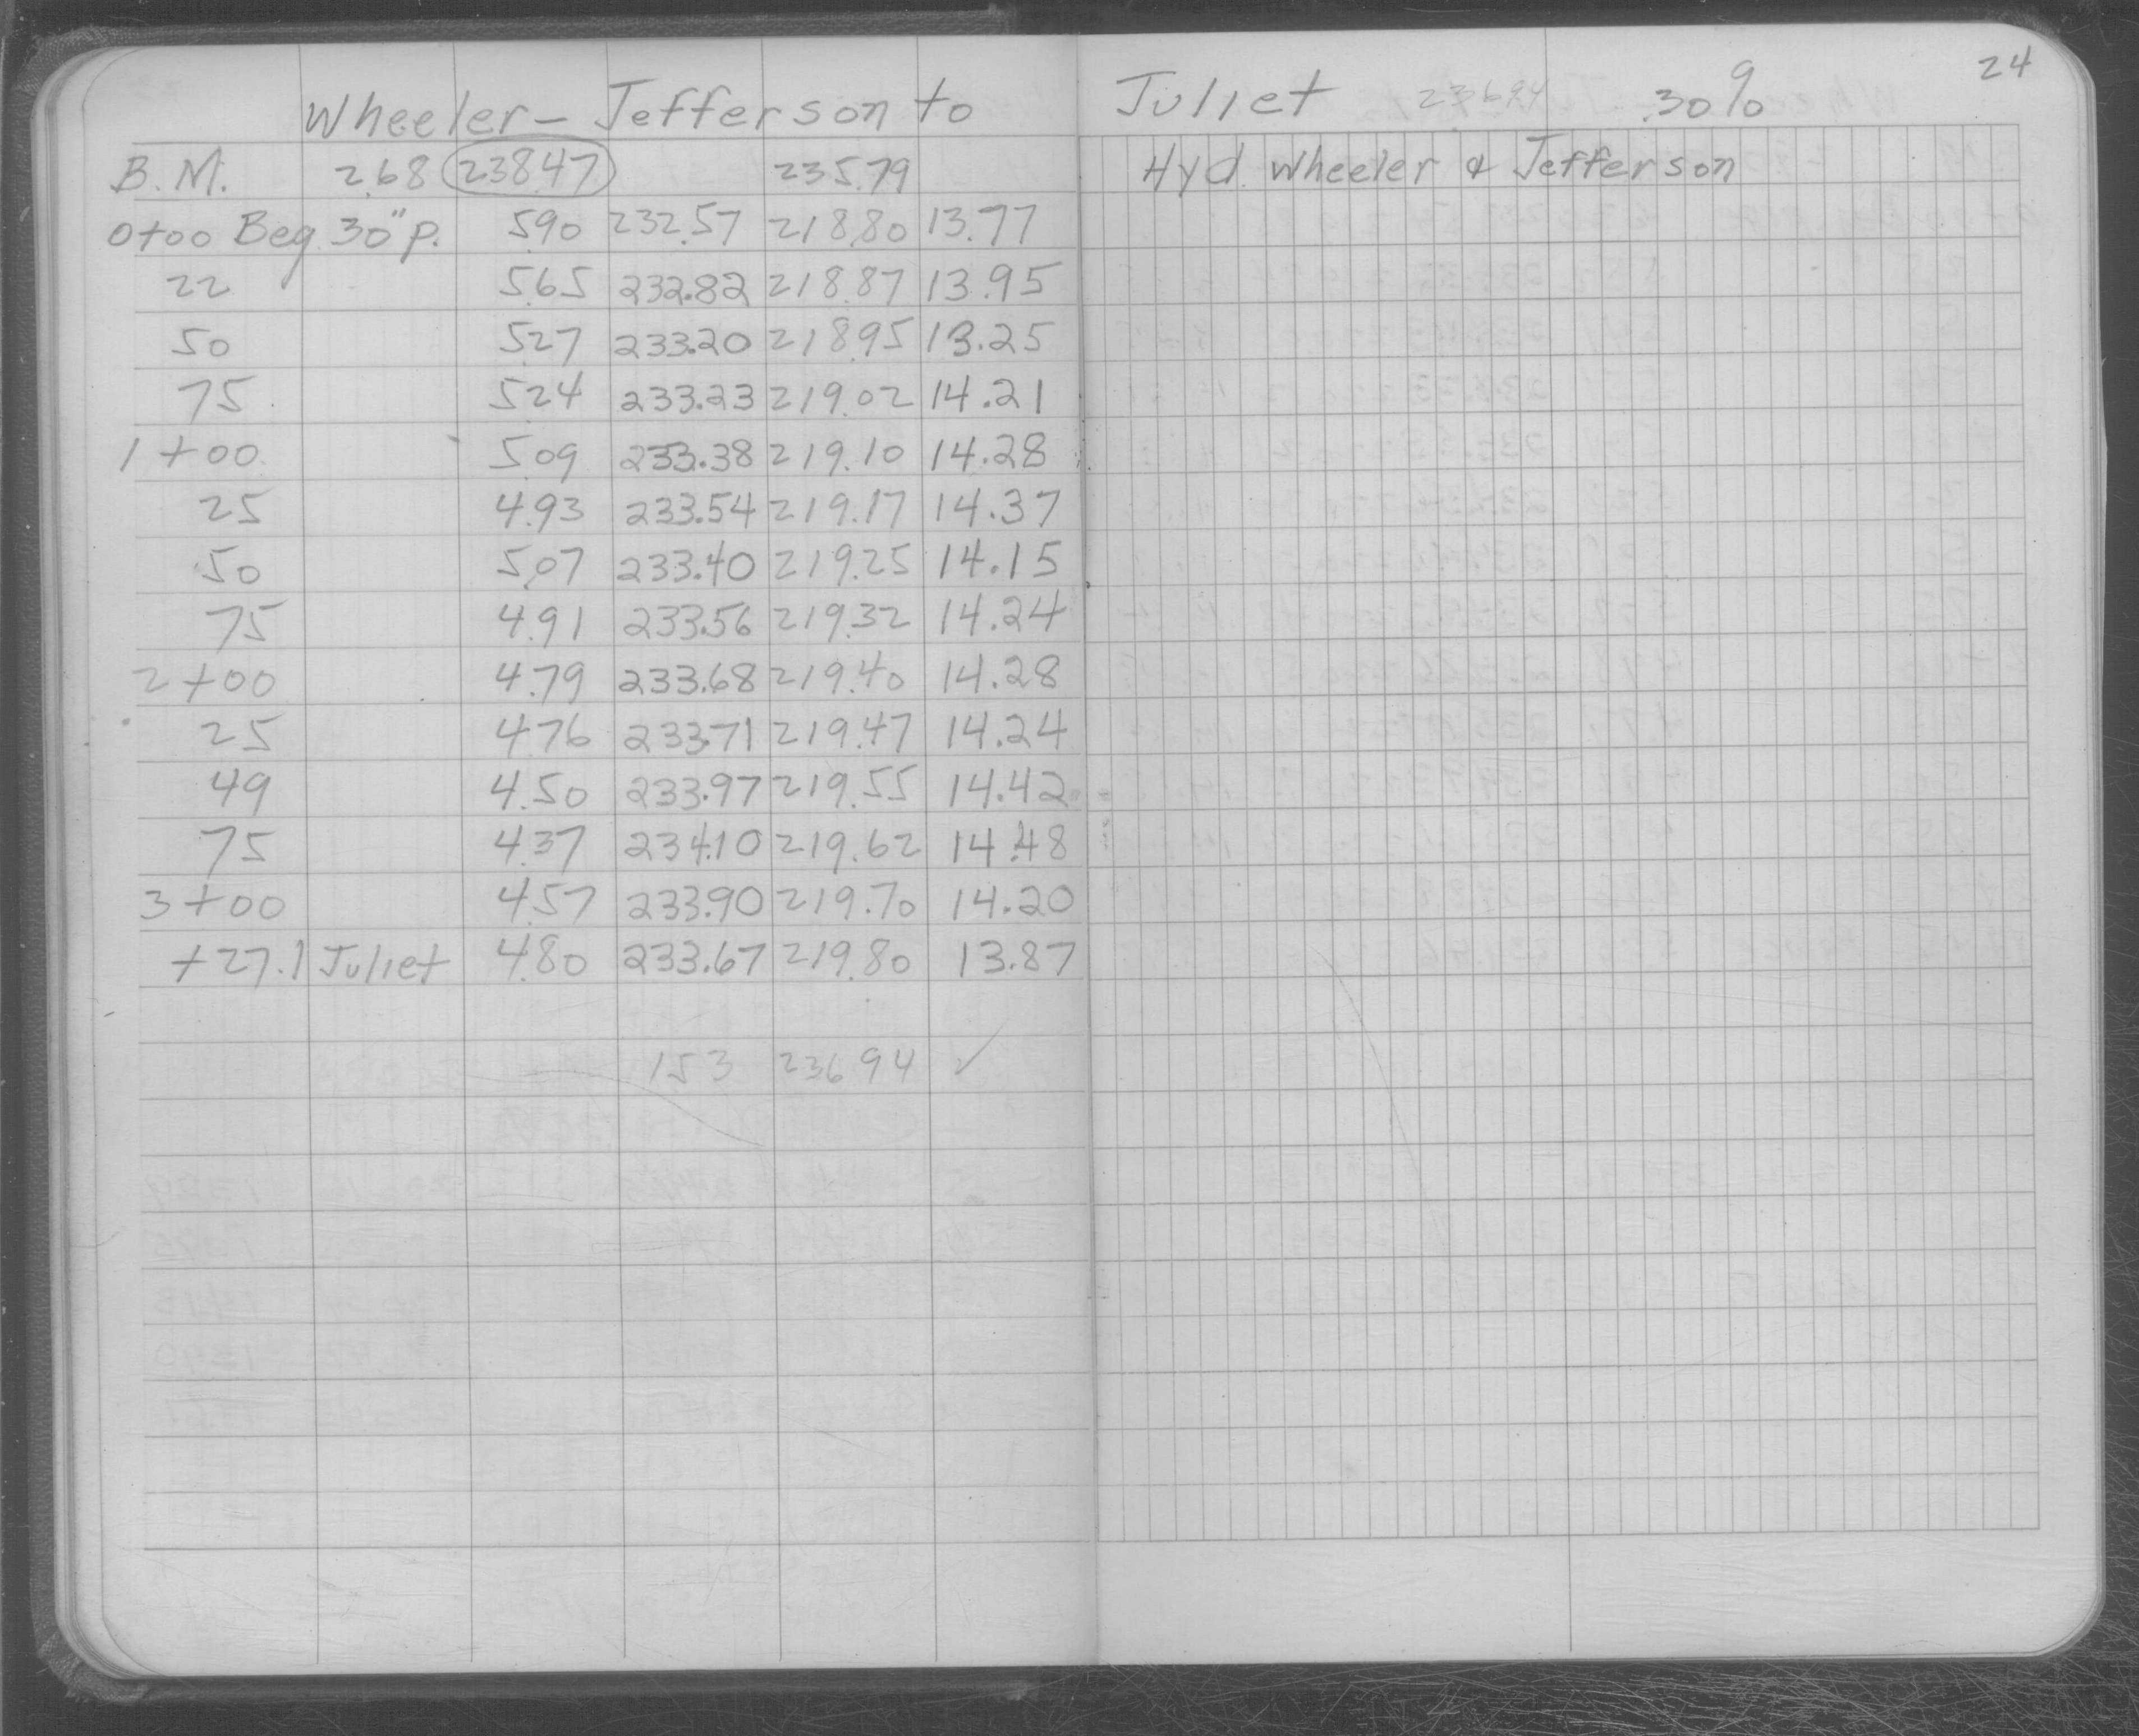 24
Wheeler - Jefferson to Juliet 236.94 .30%
B.M. 2.68 238.47 235.79 Hyd. Wheeler & Jefferson
0+00 Beg. 30" p. 5.90 232.57 218.80 13.77
22 5.65 232.82 218.87 13.95
50 5.27 233.20 218.95 13.25
75 5.24 233.23 219.02 14.21
1+00 5.09 233.38 219.10 14.28
25 4.93 233.54 219.17 14.37
50 5.07 233.40 219.25 14.15
75 4.91 233.56 219.32 14.24
2+00 4.79 233.68 219.40 14.28
25 4.76 233.71 219.47 14.24
49 4.50 233.97 219.55 14.42
75 4.37 234.10 219.62 14.48
3+00 4.57 233.90 219.70 14.20
+27.1 Juliet 4.80 233.67 219.80 13.87
153 236 94 ✓